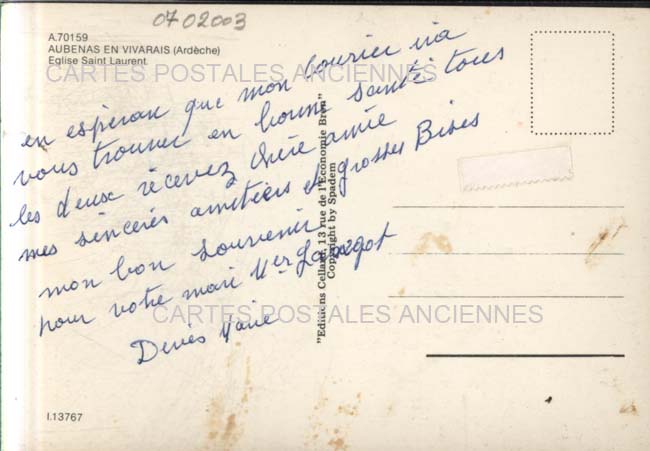 07 02003
A.70159
AUBENAS EN VIVARAIS (Ardèche)
Eglise Saint Laurent.
CARTES POSTALES ANCIENNES
en espérant que mon courier ira
vous trouver en bonne santé tous
les deux recevez chère amie
mes sincères amitiers et grosses Bises
mon bon souvenir
pour votre mari Mer
Denis Marie
"Editions Cellard, 13 rue de l'Economie Bron"
Copyright by Spadem
CARTES POSTALES ANCIENNES
I.13767